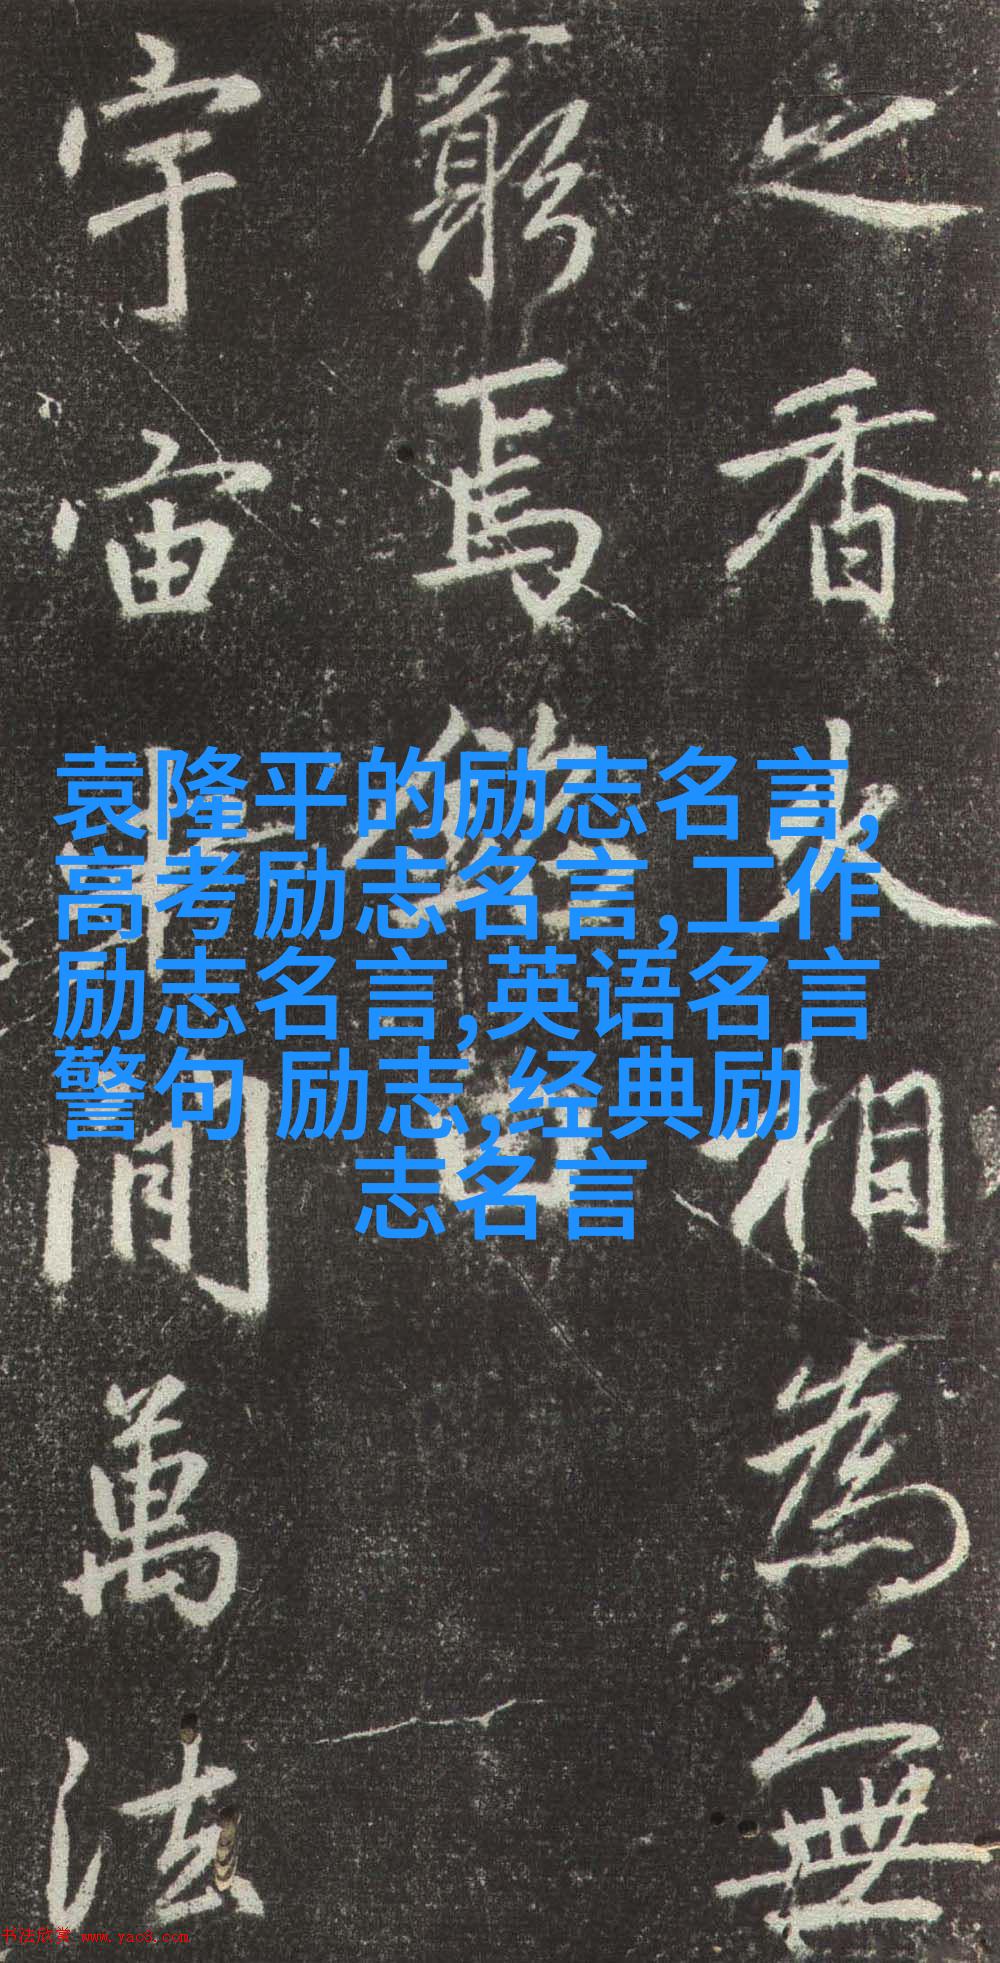 之香火相為無
窮焉銘曰
宇宙間萬法
袁隆平的励志名言,
高考励志名言,工作
励志名言,英语名言
警句 励志,经典励
志名言
书法欣赏 www.yac8.com